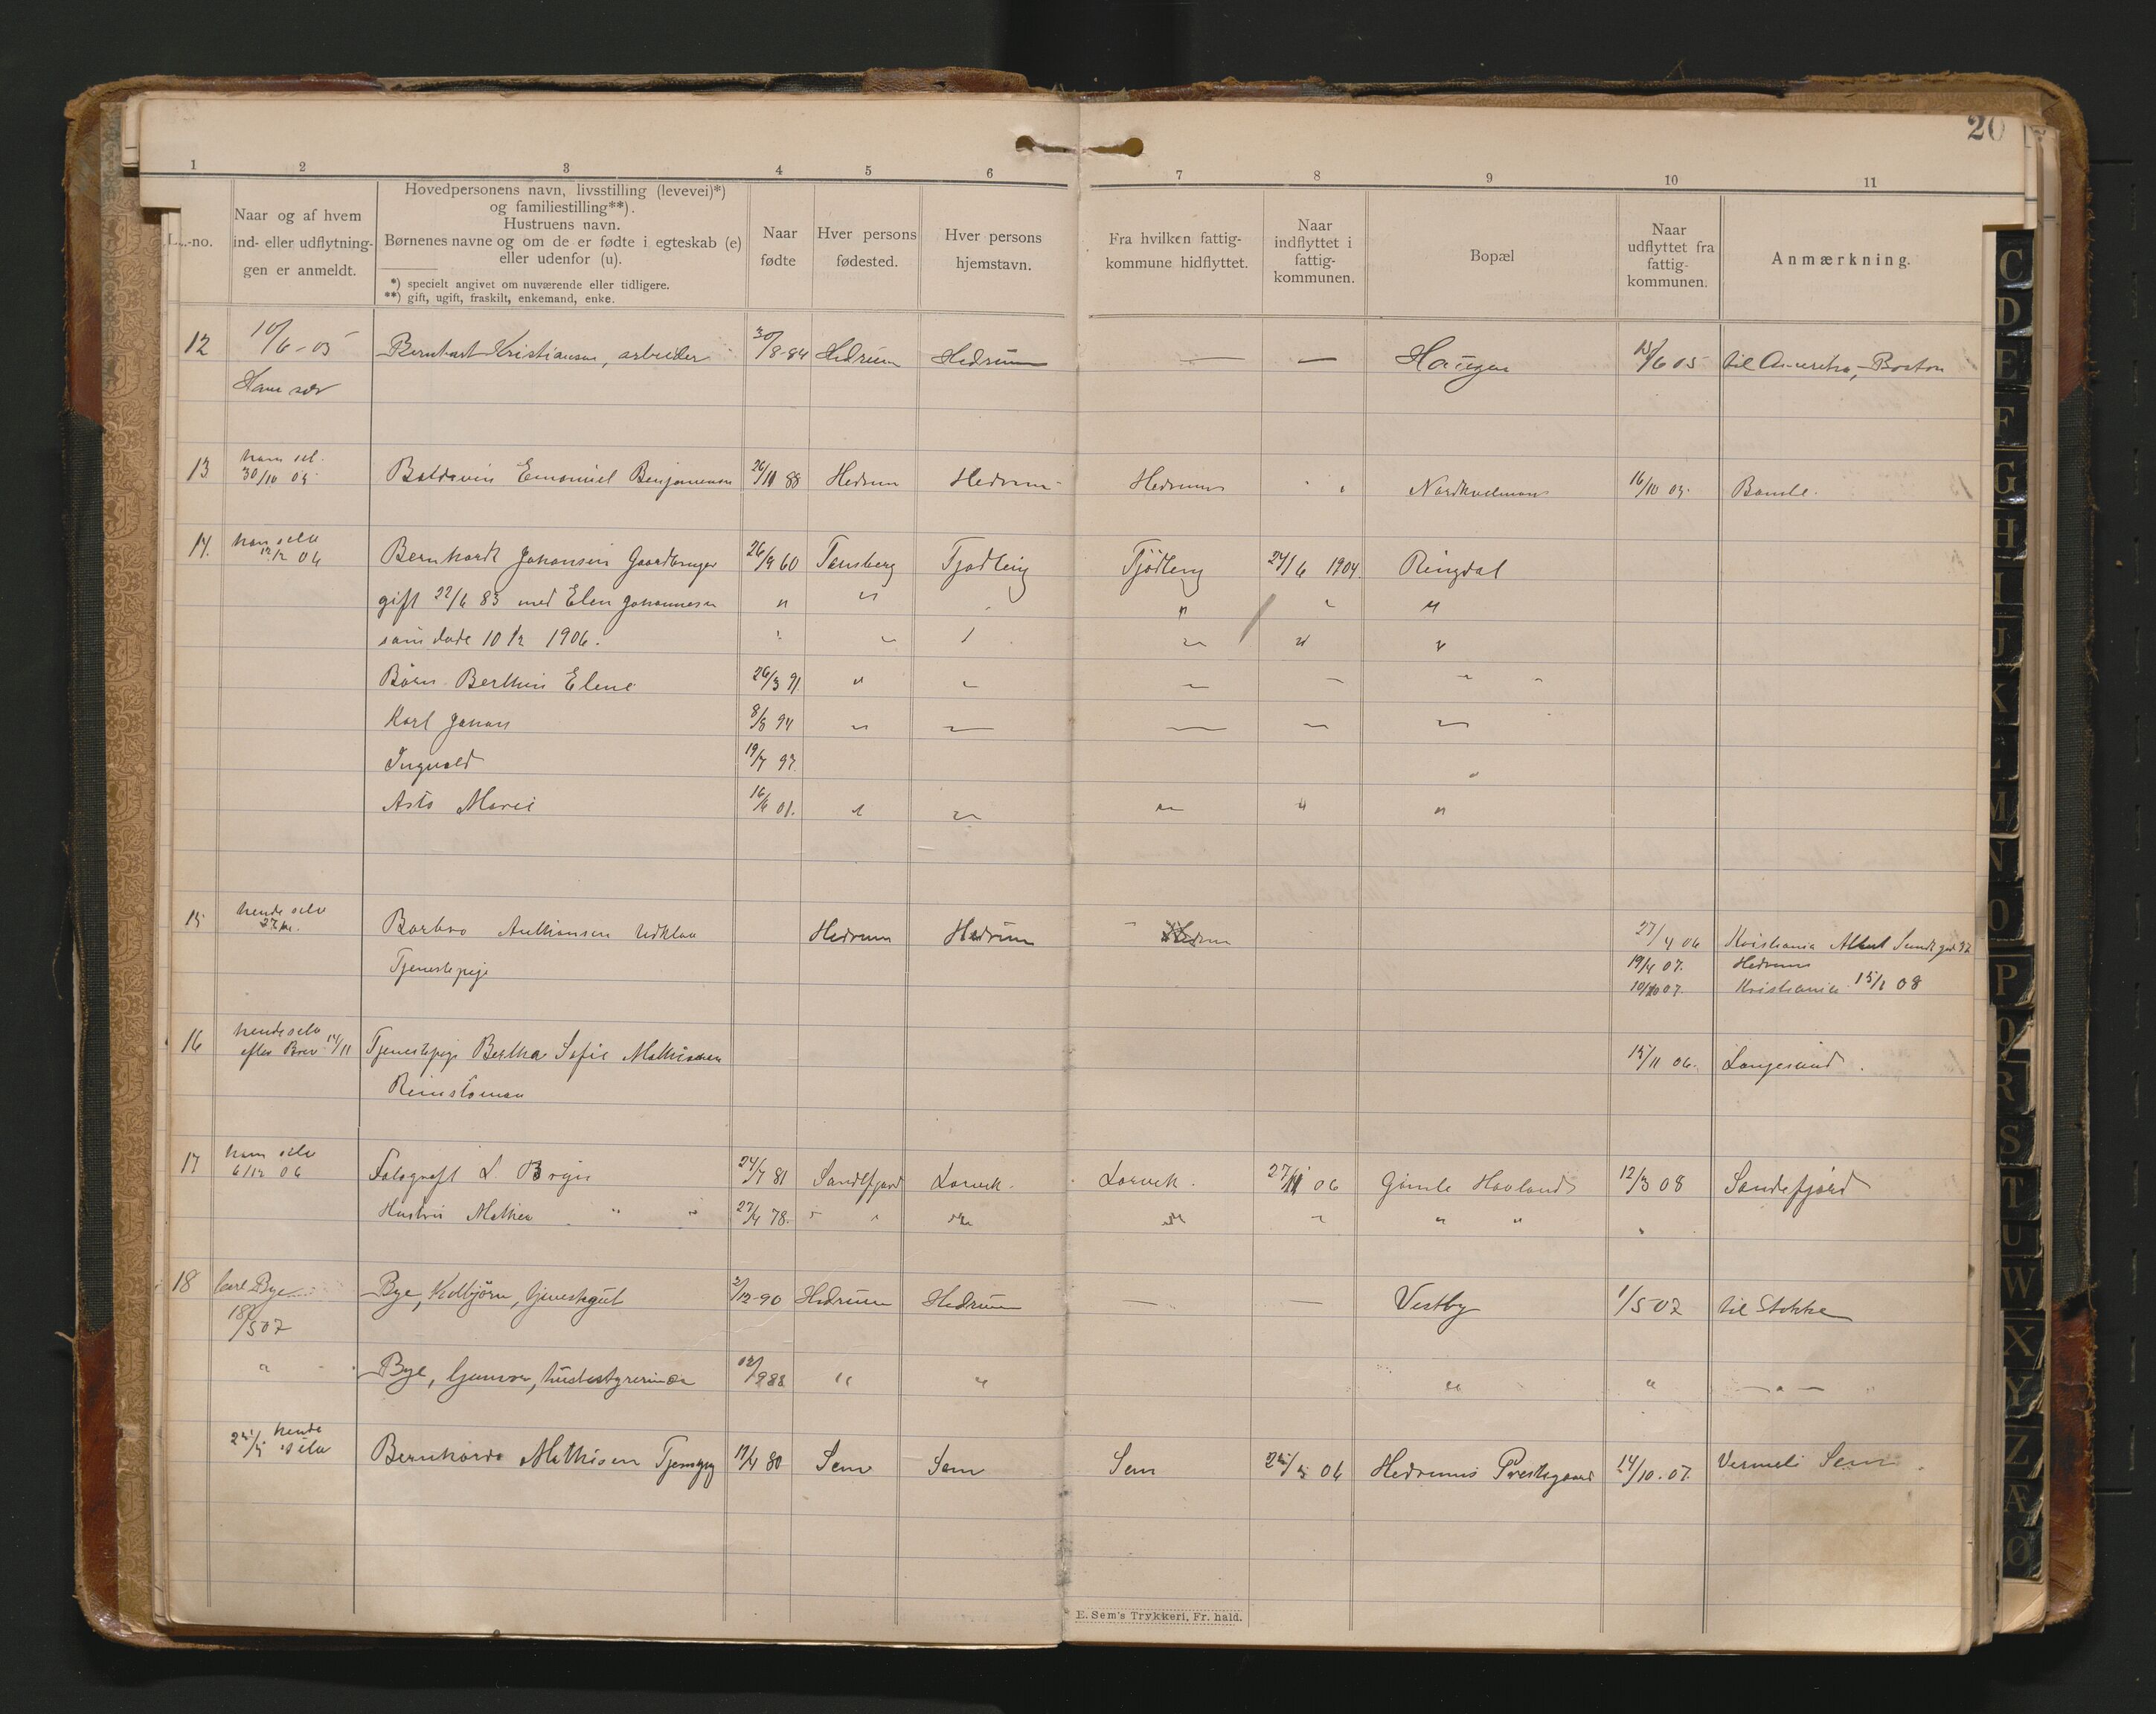 20
1 2 3 4 5 6 7 8 9 10 11
L.-no.
Naar og af hvem
ind- eller udflytnin-
gen er anmeldt.
Hovedpersonens navn, livsstilling (levevei)*)
og familiestilling**).
Hustruens navn.
Børnenes navne og om de er fødte i egteskab (e)
eller udenfor (u).
*) specielt angivet om nuværende eller tidligere.
**) gift, ugift, fraskilt, enkemand, enke.
Naar
fødte
Hver persons
fødested.
Hver persons
hjemstavn.
Fra hvilken fattig-
kommune hidflyttet.
Naar
indflyttet i
fattig-
kommunen.
Bopæl
Naar
udflyttet fra
fattig-
kommunen.
Anmærkning.
12 10/6-05 Bernhart Kristiansen, arbeider 30/8-84 Hedrum Hedrum — — Haugen 15/6 05 til Amerika, Boston
Ham selv
13 ham sel. 30/10 05 Baldevin Emanuel Benjamensen 26/11 88 Hedrum Hedrum Hedrum " " 16/10 05. Bamle.
14. han selv 12/2 06 Bernhardt Johansen Gaardbruger 26/9 60 Tønsberg Tjødling Tjødling 24/6 1904. Ringdal
gift 22/6 83 med Elen Johannesen " " " " " "
som døde 10/2 1906. " " " " " "
Børn Berthin Elene 26/3 91 " " " " " "
Karl Johan 8/8 94 " " — " "
Ingvald 19/7 97 "
Asta Marie 16/6 01. " " " " "
15 hende selv 27/4. Barbro Anthonsen Hedrum Hedrum Hedrum 27/4 06 Kristiania Albert Sundt gd. 32
Tjenestepige 19/4 07. Hedrum
10/10 07. Kristiania 15/1 08
16 hende selv efter Brev 14/11 Tjenestepige Bertha Sofie Mathisen 15/11 06. Langesund.
17 ham selv 6/12 06 Fotograf L. Bryn 24/7 81 Sandefjord Larvik. Larvik. 27/11 06 Gimle Havland 12/3 08 Sandefjord
Hustru Mathea " " 27/4 78. " " " " " " " "
18 Carl Bye Bye, Kolbjörn, tjenestegut 2/12-90 Hedrum Hedrum — — Vestby 1/5 07 til Stokke
18/5 07
" Bye, Gunvor, husbestyrerinde 12/9 88 " " " " — " —
25/5 hende selv Bernharda Mathisen Tjenpg 11/4 80 Sem Sem Sem 25/5 06 Hedrums Prestegaard 14/10. 07. Sem
E. Sem's Trykkeri, Fr. hald.
C
D
E
F
G
H
I
J
K
L
M
N
O
P
Q
R
S
T
U
W
X
Y
Z
Æ
Ø